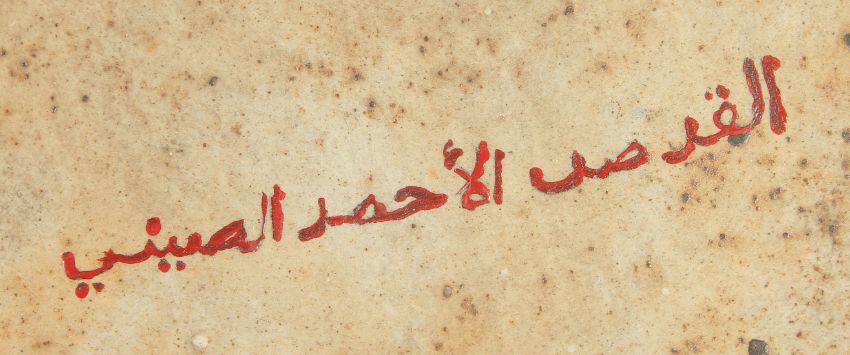 القرص الأحمر الصيني